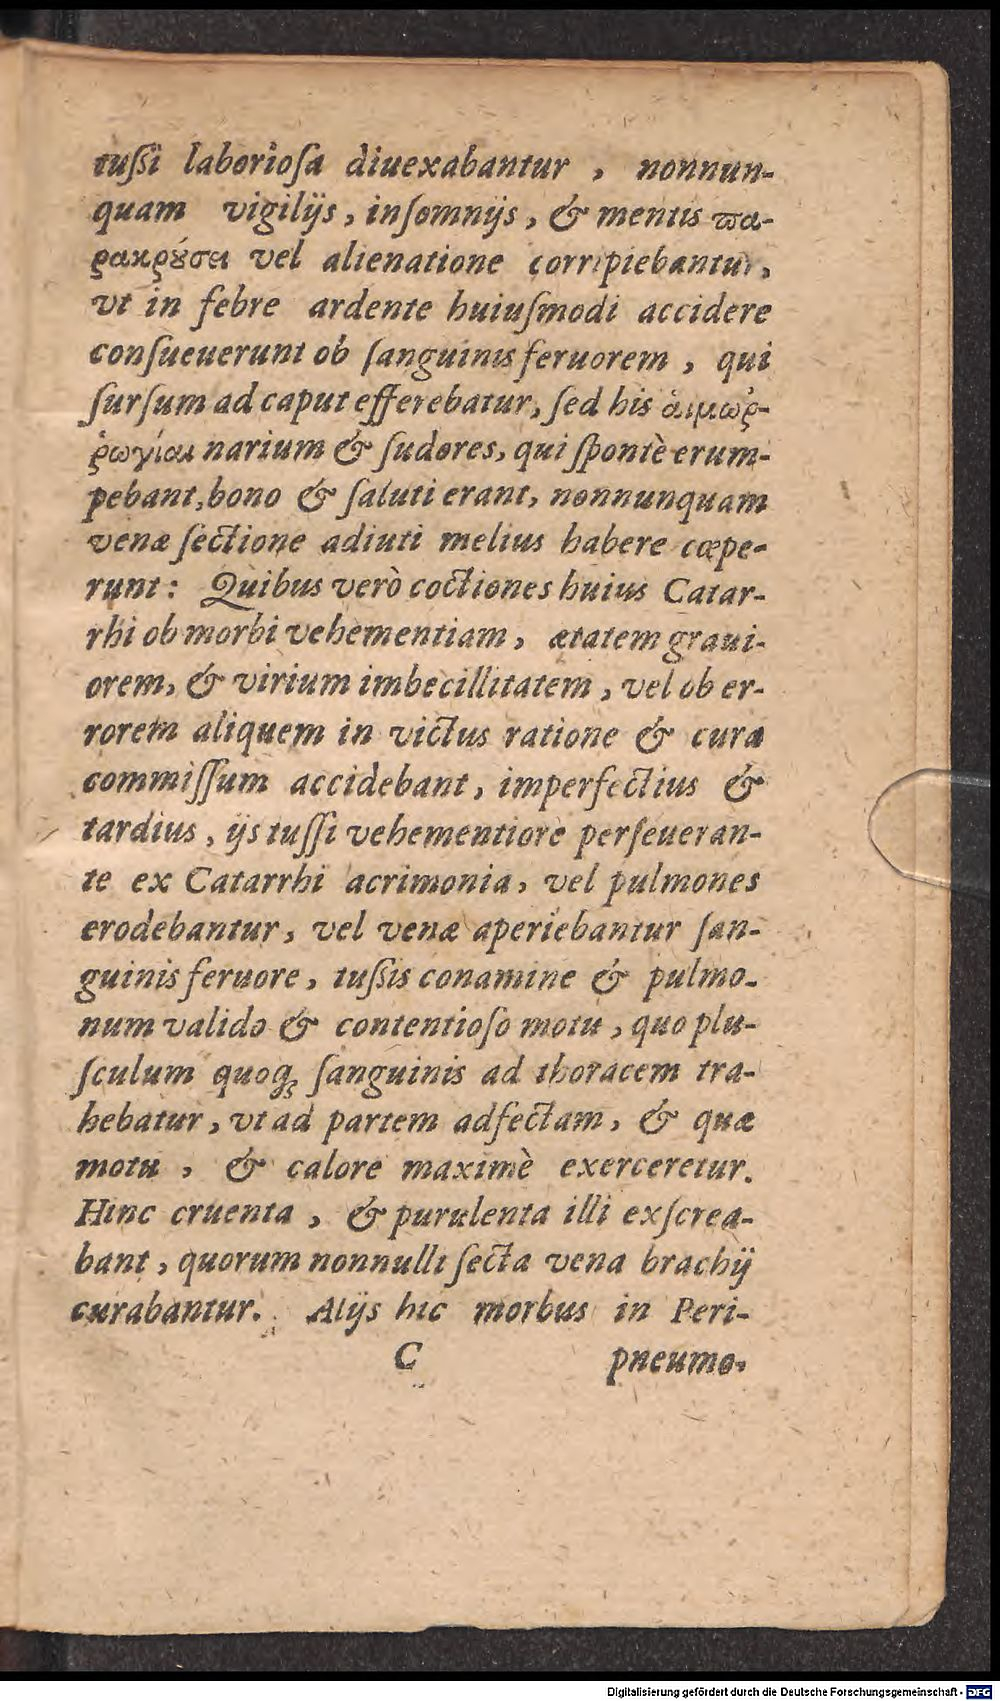 tuſſi laborioſa diuexabantur, nonnun-
quam vigilijs, inſomnijs, & mentis πα-
ρακρούσει vel alienatione corripiebantur,
vt in febre ardente huiuſmodi accidere
conſueuerunt ob ſanguinis feruorem, qui
ſurſum ad caput efferebatur, ſed his ἁιμωῤ-
ῥωγίαι narium & ſudores, qui ſpontè erum-
pebant, bono & ſaluti erant, nonnunquam
venæ ſectione adiuti melius habere cœpe-
runt: Quibus verò coctiones huius Catar-
rhi ob morbi vehementiam, ætatem graui-
orem, & virium imbecillitatem, vel ob er-
rorem aliquem in victus ratione & cura
commiſſum accidebant, imperfectius &
tardius, ijs tuſſi vehementiore perſeueran-
te ex Catarrhi acrimonia, vel pulmones
erodebantur, vel venæ aperiebantur ſan-
guinis feruore, tuſsis conamine & pulmo-
num valido & contentioſo motu, quo plu-
ſculum quoqꝫ ſanguinis ad thoracem tra-
hebatur, vt ad partem adfectam, & quæ
motu, & calore maximè exerceretur.
Hinc cruenta, & purulenta illi exſcrea-
bant, quorum nonnulli ſecta vena brachij
curabantur. Alijs hic morbus in Peri-
C pneumo-
Digitalisierung gefördert durch die Deutsche Forschungsgemeinschaft - DFG